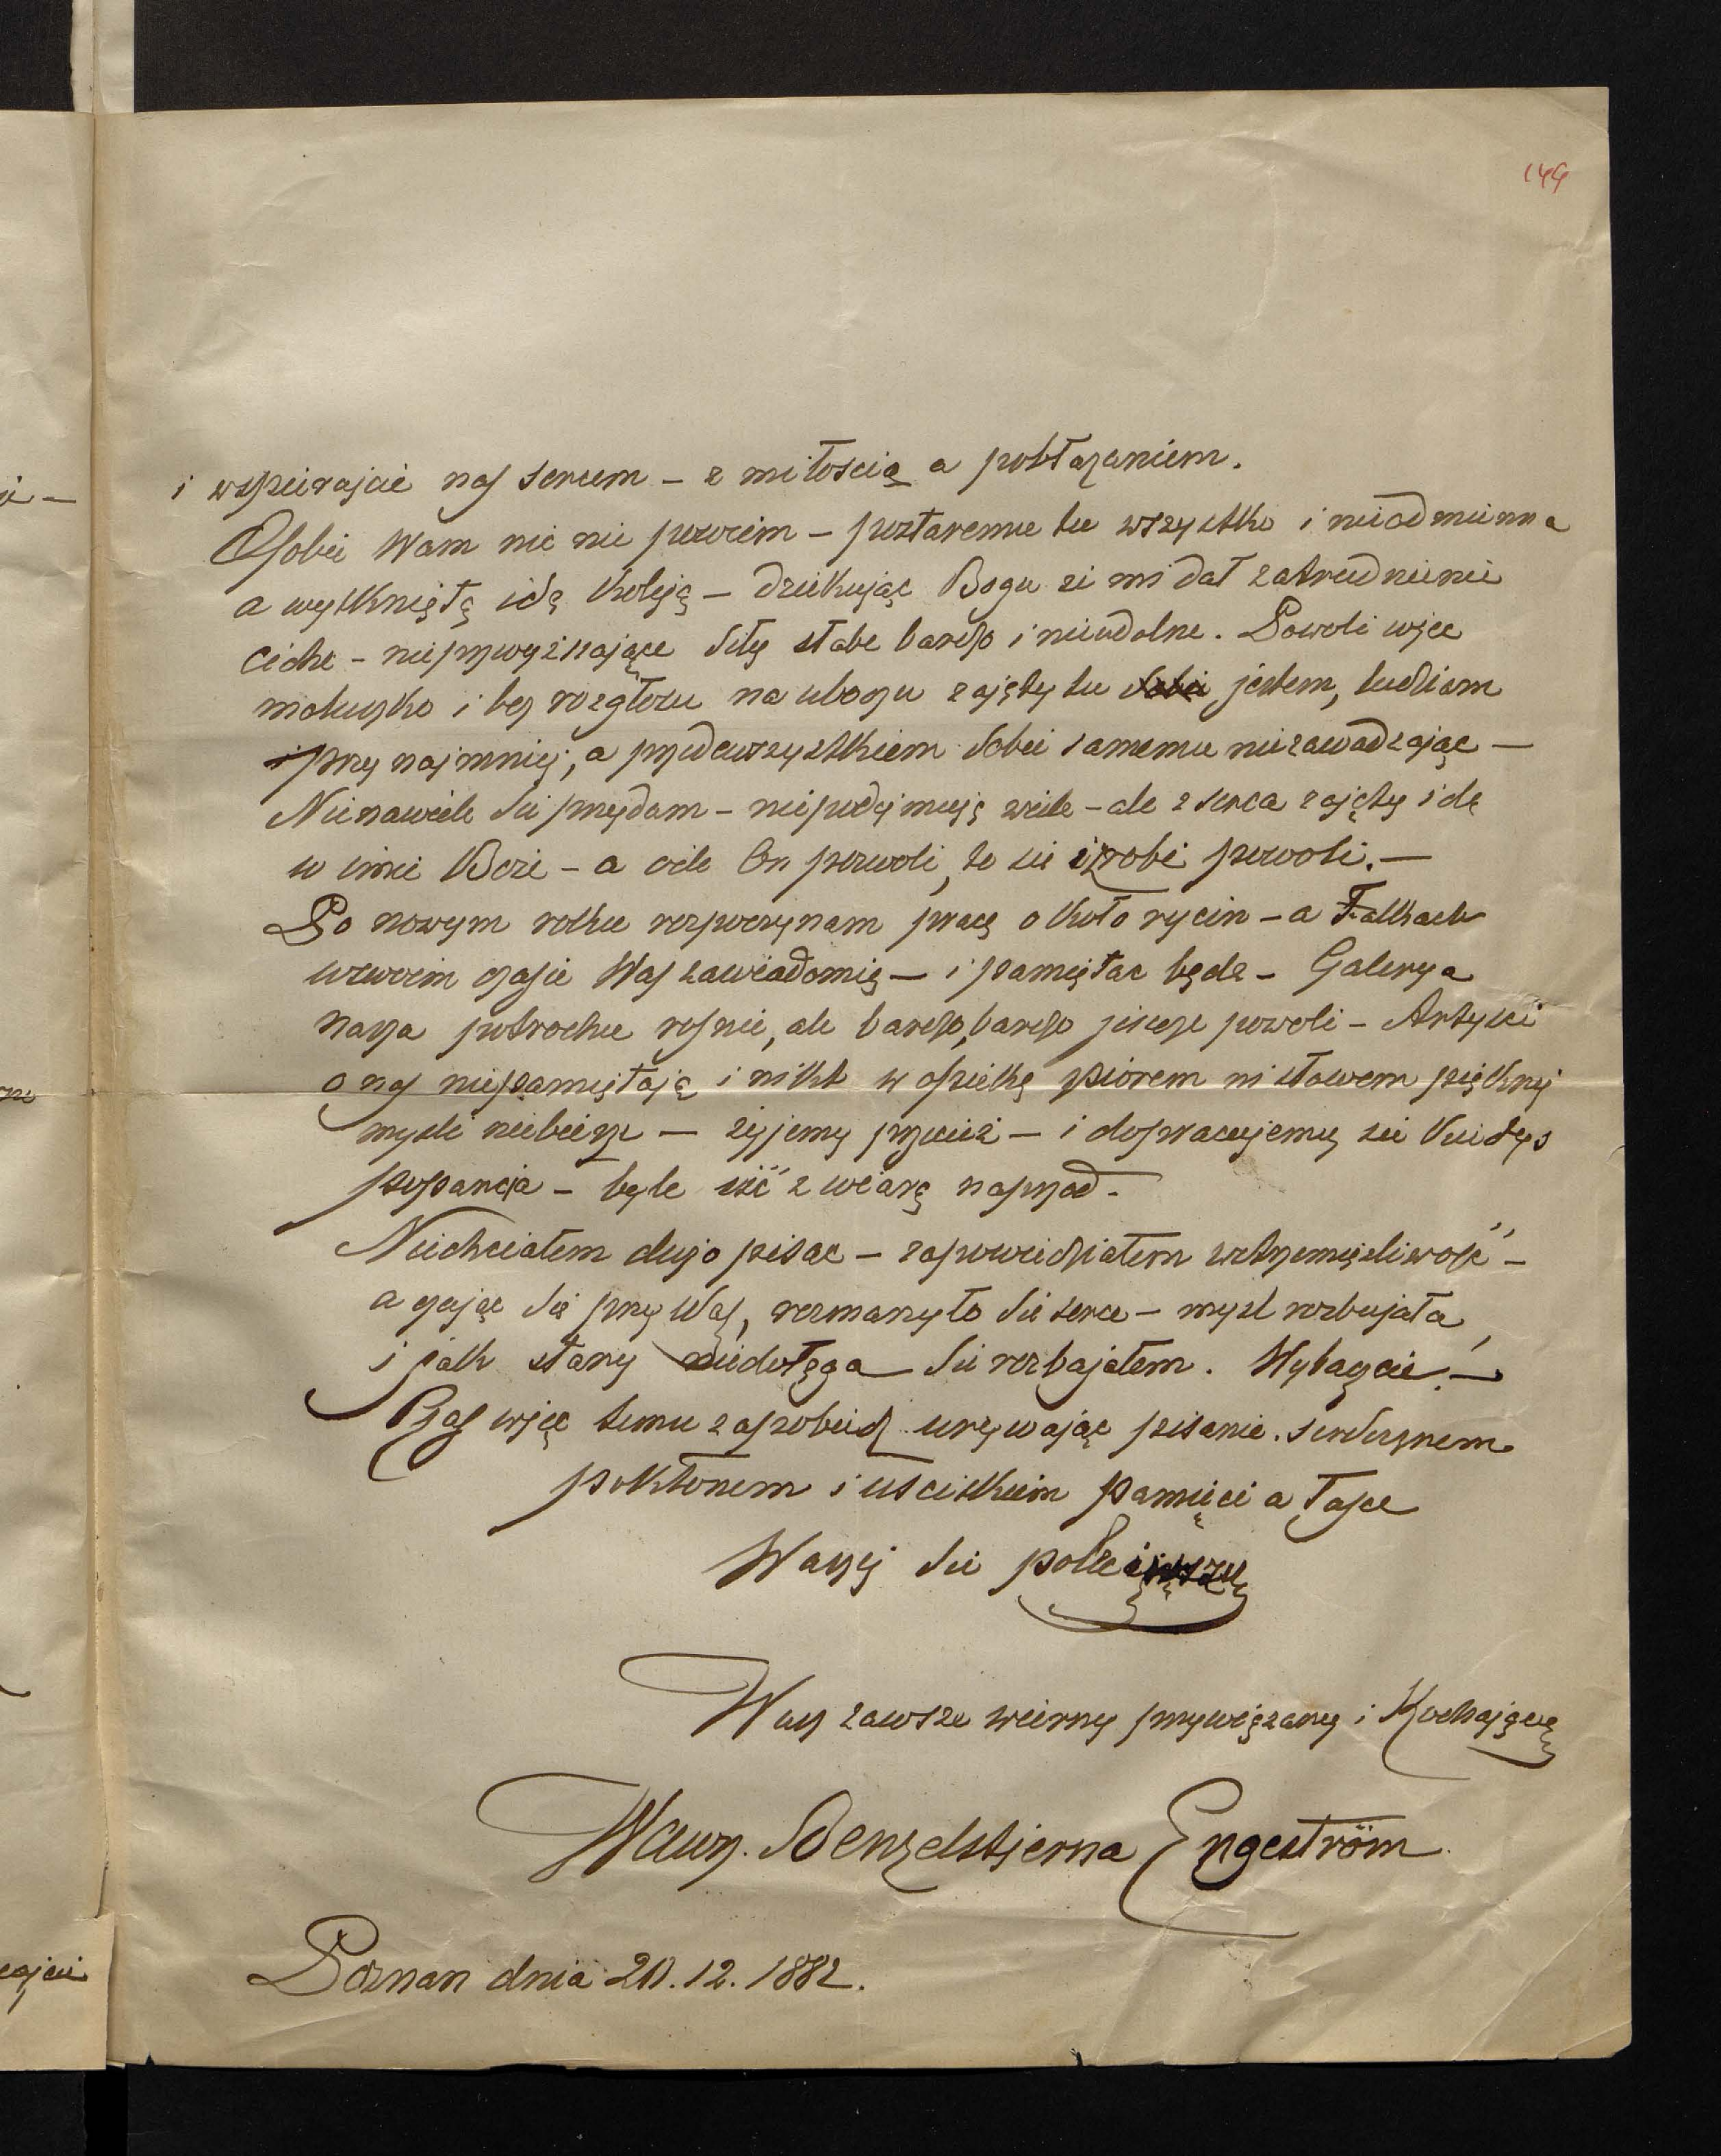 144
i wspierajcie nas sercem – z miłoscią a pobłażaniem.
O sobie Wam nic nie powiem – postaremu tu wszystko i nieodmienna
a wytkniętą idę koleją – dziekując Bogu że mi dał zatrudnienie
ciche – nieprzewyższające siły słabe bardzo i nieudolne. Powoli więc
maluczko i bez rozgłosu na uboczu zajęty tu jestem, ludziom
przynajmniej, a przedewszystkiem sobie samemu niezawadzając –
Nienawiele sie przydam – niepodejmuję wiele – ale z serca zajęty idę
w imie Boże – a ocile On pozwoli, to sie zrobi powoli. –
Po nowym roku rozpoczynam pracę około rycin – a Falkach
wswoim czasie Was zawiadomię – i pamiętac będę – Galerya
nasza potrochu rosnie, ale bardzo, bardzo jeszcze powoli – Artysci
o nas niepamiętają i nikt w opiekę piorem ni słowem pięknej
mysli niebierze – żyjemy przecież – i dopracujemy sie kiedys
poparcia – byle iść z wiarą naprzod –
Niechciałem dużo pisac – zapowiedziałem wstrzemięzliwość –
a czując się przy Was, rozmarzyło sie serce – mysl rozbujała,
i jak stary niedołęga sie rozbajałem. Wybaczcie! –
Czas więc temu zapobiedz urywając pisanie. serdecznem
pokłonem i usciskiem pamięci a łasce
Waszej sie polecając
Wasz zawsze wierny przywiązany i Kochający
Wawrz. Benzelstjerna Engeström
Poznan dnia 20.12.1882.